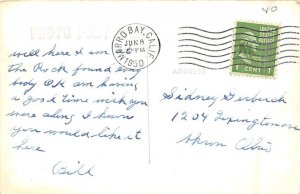 PHOTO POST
MORRO BAY, CALIF.
JUN 8
PM
1950
UNITED STATES
1 CENT 1
ADDRESS
well here I am
the Rock found every
body OK am having
a good time wish you
were along I know
you would like it
here
Bill
Sidney Gerberich
1204 Lexington
Akron Ohio